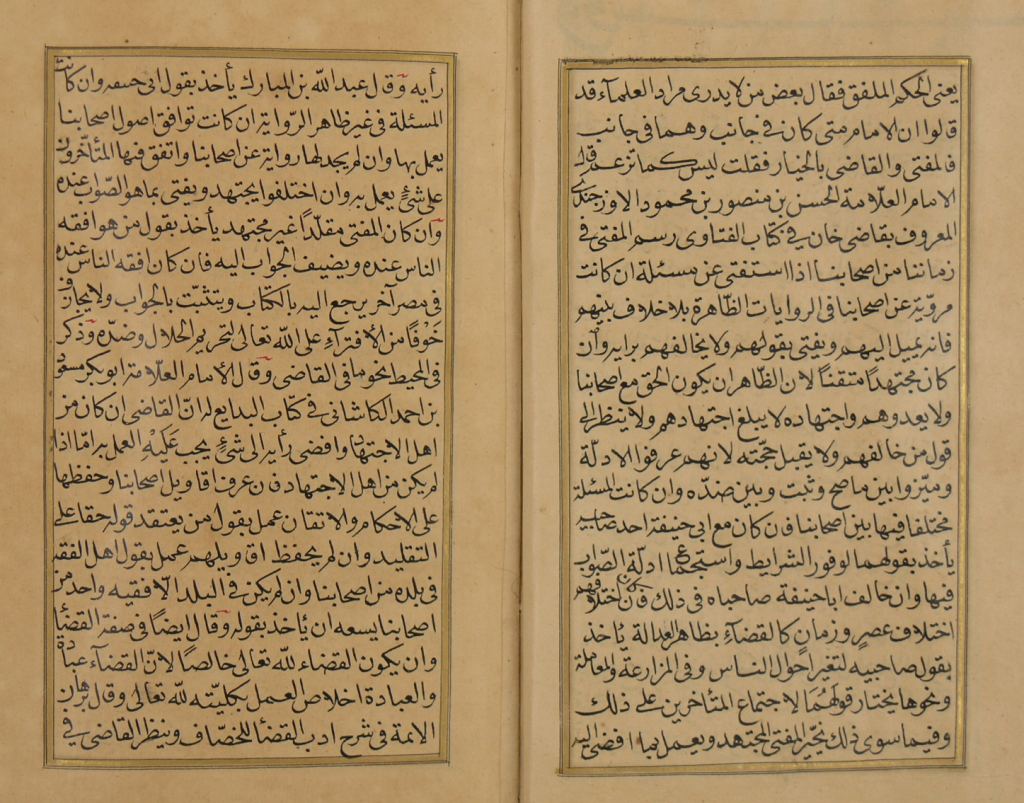 يعنى الحكم الملفق فقال بعض من لا يدرى مراد العلمآء قد
قالوا ان الامام متى كان فى جانب وهما فى جانب
فالمفتى والقاضى بالخيار فقلت ليس كما تزعم قال
الامام العلامة الحسن بن منصور بن محمود الاوزجندى
المعروف بقاضى خان فى كتاب الفتاوى رسم المفتى فى
زماننا من اصحابنا اذا استفتى عن مسئلة ان كانت
مروية عن اصحابنا فى الروايات الظاهرة بلا خلاف بينهم
فانه يميل اليهم ويفتى بقولهم ولا يخالفهم برايه وان
كان مجتهدًا متقنًا لان الظاهر ان يكون الحق مع اصحابنا
ولا يعدوهم واجتهاده لا يبلغ اجتهادهم ولا ينظر الى
قول من خالفهم ولا يقبل حجّته لانهم عرفوا الادلّة
وميّزوا بين ما صح وثبت وبين ضدّه وان كانت المسئلة
مختلفا فيها بين اصحابنا فان كان مع ابى حنيفة احد صاحبيه
يأخذ بقولهما لوفور الشرايط واستجماع ادلّة الصّواب
فيها وان خالف ابا حنيفة صاحباه فى ذلك فان كان اختلافهم
اختلاف عصر وزمان كالقضآء بظاهر العدالة يأخذ
بقول صاحبيه لتغير احوال الناس وفى المزارعة والمعاملة
ونحوها يختار قولهُمَا لاجتماع المتأخرين على ذلك
وفيما سوى ذلك يخيّر المفتى المجتهد ويعمل بما افضى اليه
رأيه وقال عبد الله بن المبارك يأخذ بقول ابى حنيفه وان كانت
المسئلة فى غير ظاهر الرّواية ان كانت توافق اصول اصحابنا
يعمل بها وان لم يجد لها رواية عن اصحابنا واتفق فيها المتأخرون
على شئٍ يعمل به وان اختلفوا يجتهد ويفتى بما هو الصّواب عنده
وان كان المفتى مقلّدًا غير مجتهد يأخذ بقول من هو افقه
الناس عنده ويضيف الجواب اليه فان كان افقه الناس عنده
فى مصر آخر يرجع اليه بالكتاب ويتثبّت بالجواب ولا يجازف
خَوْفًا من الافترآء على الله تعالى بتحريم الحلال وضدّه وذكر
فى المحيط نحوه فى القاضى وقال الامام العلّامة ابو بكر مسعود
بن احمد الكاشانى فى كتاب البدايع له انّ القاضى ان كان من
اهل الاجتهاد وافضى رأيه الى شئٍ يجب عَلَيْهِ العمل به امّا اذا
لم يكن من اهل الاجتهاد فان عرف اقاويل اصحابنا وحفظها
على الاحكام والاتقان عمل بقول من يعتقد قوله حقا على
التقليد وان لم يحفظ اقاويلهم عمل بقول اهل الفقه
فى بلده من اصحابنا وان لم يكن فى البلد الا فقيه واحد من
اصحابنا يسعه ان يأخذ بقوله وقال ايضًا فى صفة القضاء
وان يكون القضاء لله تعالى خالصًا لانّ القضآء عبادة
والعبادة اخلاص العمل بكليّته لله تعالى وقال برهان
الائمة فى شرح ادب القضأ للخصّاف وينظر القاضى فى